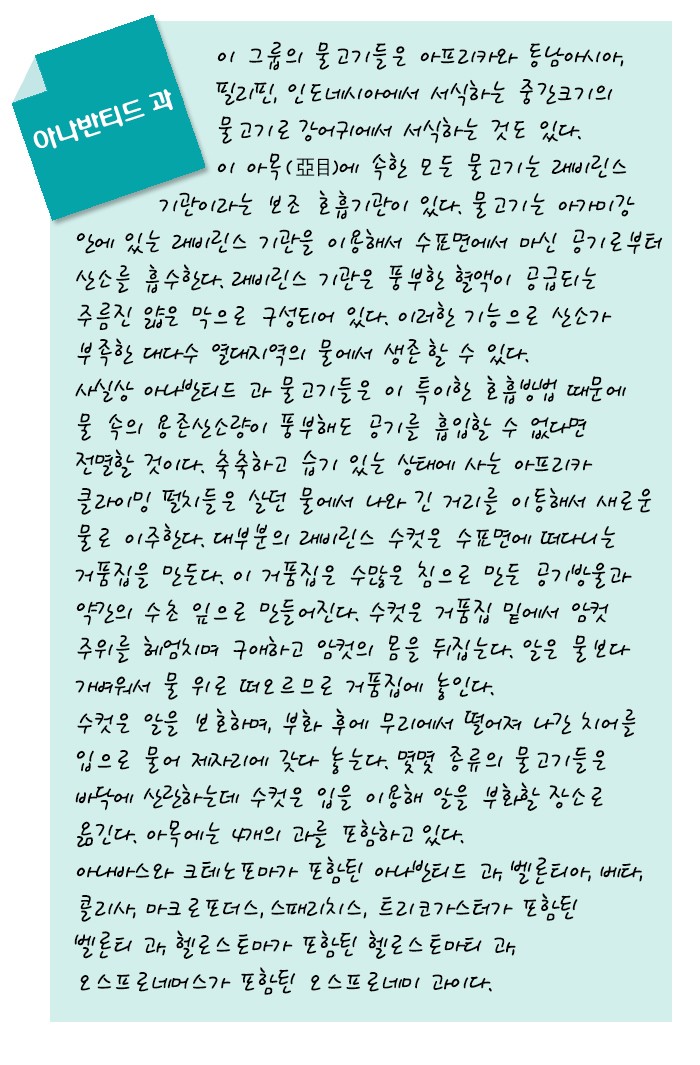 아나반티드 과
이 그룹의 물고기들은 아프리카와 동남아시아,
필리핀, 인도네시아에서 서식하는 중간크기의
물고기로 강어귀에서 서식하는 것도 있다.
이 아목(亞目)에 속한 모든 물고기는 래비린스
기관이라는 보조 호흡기관이 있다. 물고기는 아가미강
안에 있는 래비린스 기관을 이용해서 수표면에서 마신 공기로부터
산소를 흡수한다. 래비린스 기관은 풍부한 혈액이 공급되는
주름진 얇은 막으로 구성되어 있다. 이러한 기능으로 산소가
부족한 대다수 열대지역의 물에서 생존할 수 있다.
사실상 아나반티드 과 물고기들은 이 특이한 호흡방법 때문에
물 속의 용존산소량이 풍부해도 공기를 흡입할 수 없다면
전멸할 것이다. 축축하고 습기 있는 상태에 사는 아프리카
클라이밍 펄치들은 살던 물에서 나와 긴 거리를 이동해서 새로운
물로 이주한다. 대부분의 래비린스 수컷은 수표면에 떠다니는
거품집을 만든다. 이 거품집은 수많은 침으로 만든 공기방울과
약간의 수초 잎으로 만들어진다. 수컷은 거품집 밑에서 암컷
주위를 헤엄치며 구애하고 암컷의 몸을 뒤집는다. 알은 물보다
가벼워서 물 위로 떠오르므로 거품집에 놓인다.
수컷은 알을 보호하며, 부화 후에 무리에서 떨어져 나간 치어를
입으로 물어 제자리에 갖다 놓는다. 몇몇 종류의 물고기들은
바닥에 산란하는데 수컷은 입을 이용해 알을 부화할 장소로
옮긴다. 아목에는 4개의 과를 포함하고 있다.
아나바스와 크테노포마가 포함된 아나반티드 과, 벨론티아, 베타,
콜리사, 마크로포더스, 스패리치스, 트리코가스터가 포함된
벨론티 과, 헬로스토마가 포함된 헬로스토마티 과,
오스프로네머스가 포함된 오스프로네미 과이다.